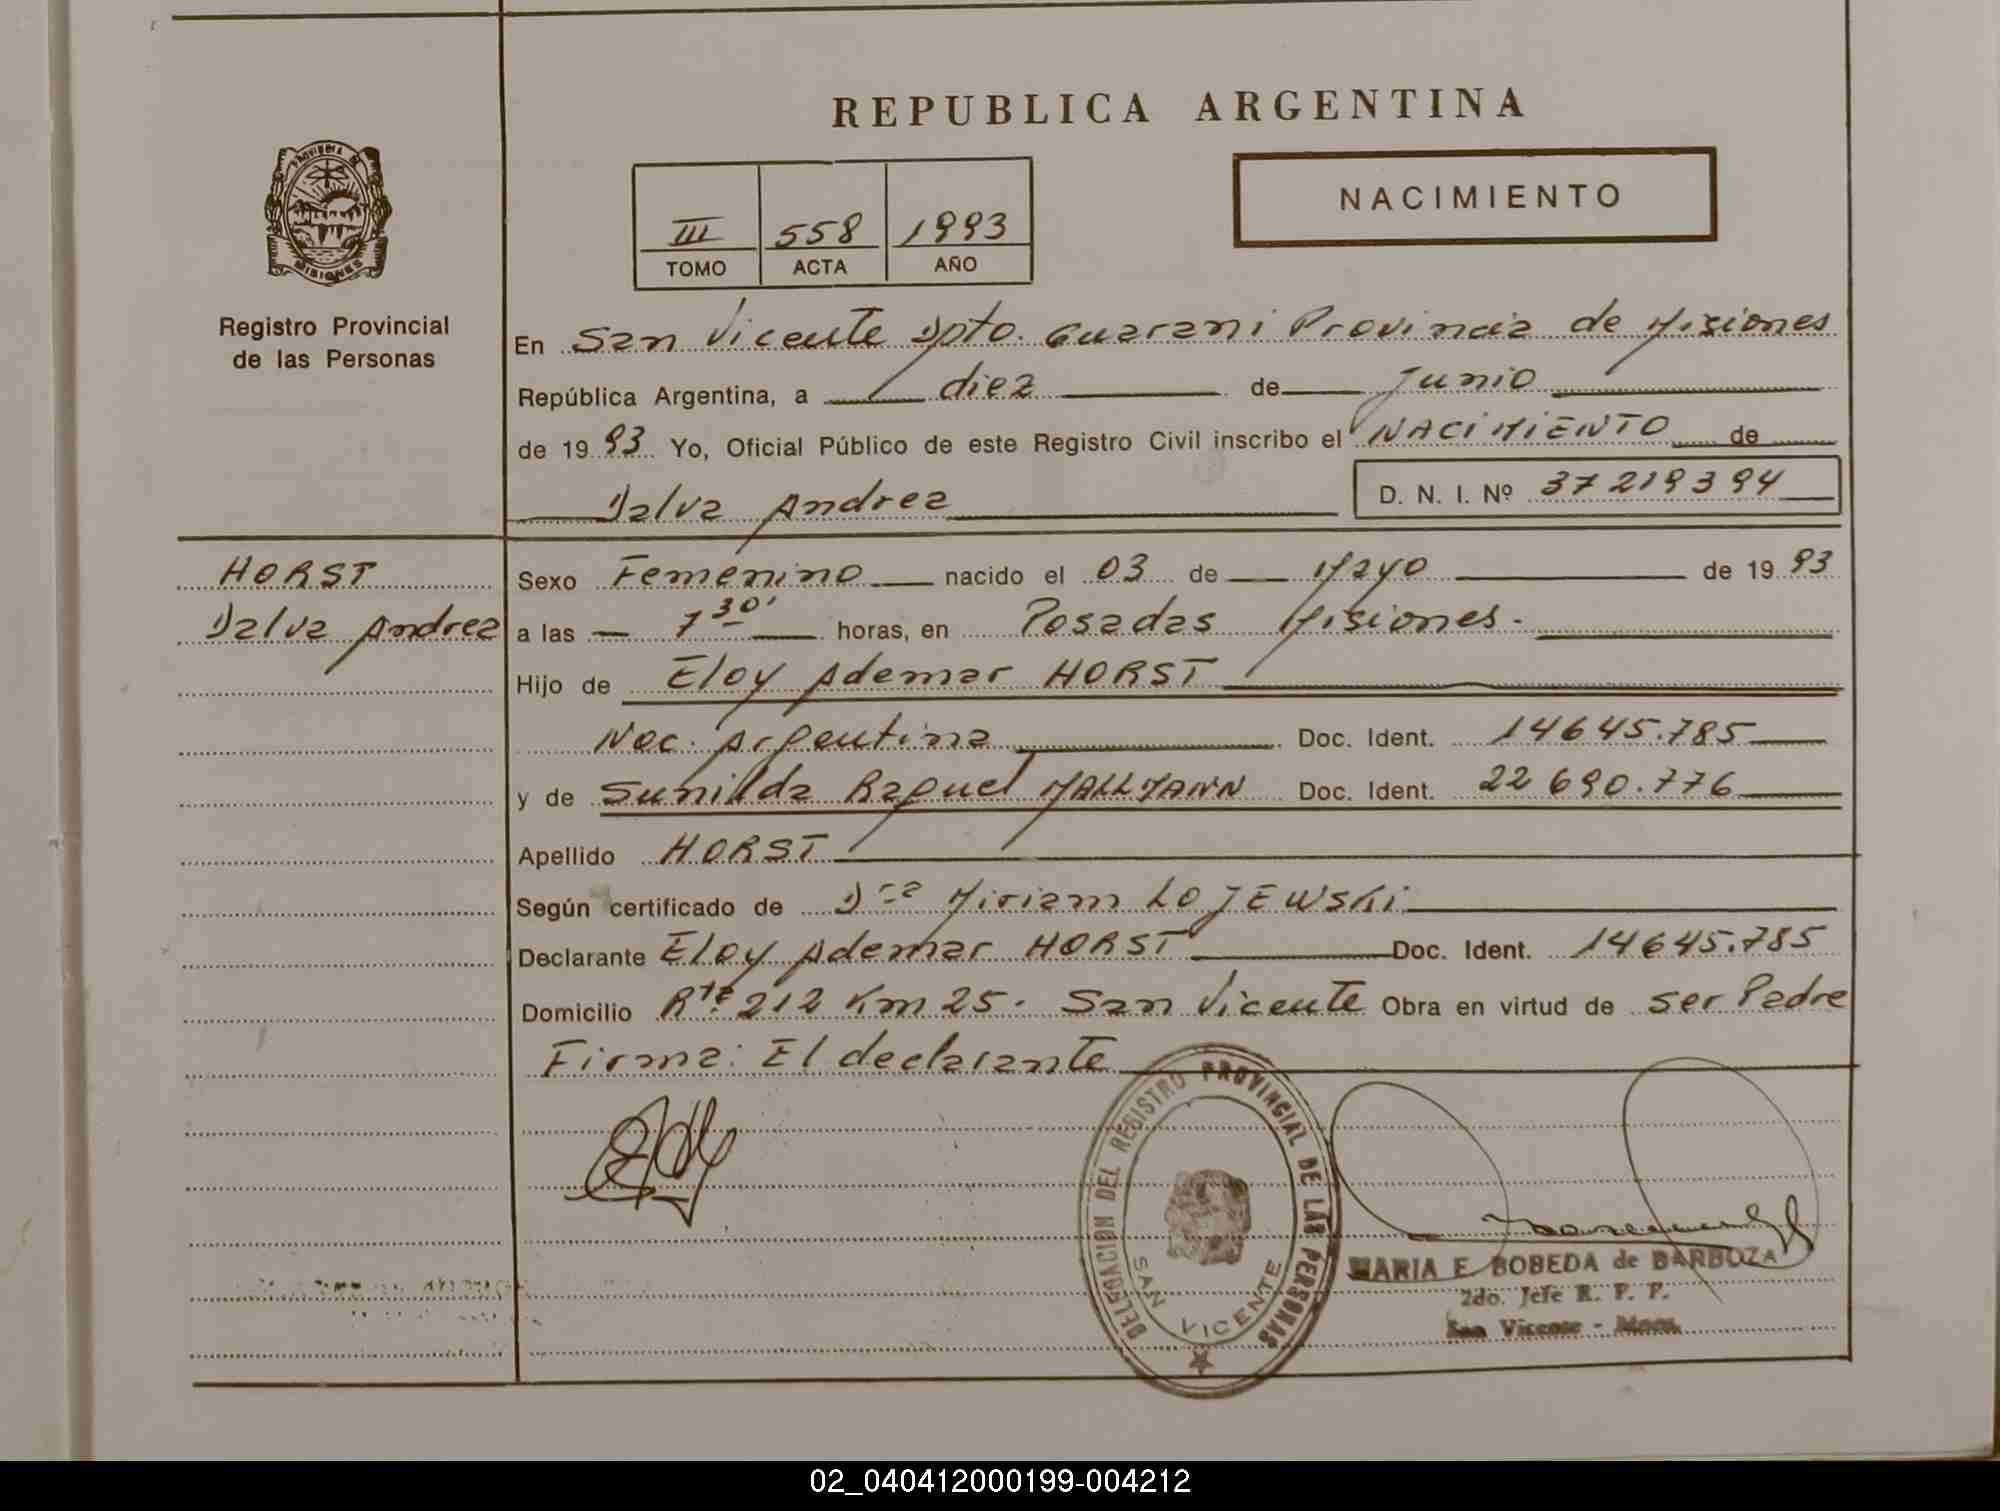 REPUBLICA ARGENTINA
PROVINCIA DE
MISIONES
Registro Provincial
de las Personas
III 558 1993
TOMO ACTA AÑO
NACIMIENTO
En San Vicente Dpto. Guarani Provincia de Misiones
República Argentina, a diez de Junio
de 1993 Yo, Oficial Público de este Registro Civil inscribo el NACIMIENTO de
Dalva Andrea D. N. I. Nº 37 219 394
HORST
Dalva Andrea
Sexo Femenino nacido el 03 de Mayo de 1993
a las 7 30' horas, en Posadas Misiones.
Hijo de Eloy Ademar HORST
Nac. Argentina Doc. Ident. 14645.785
y de Sunilda Raquel MALLMANN Doc. Ident. 22 690.776
Apellido HORST
Según certificado de Dra Miriam LOJEWSKi
Declarante Eloy Ademar HORST Doc. Ident. 14645.785
Domicilio Rta. 212 Km 25. San Vicente Obra en virtud de ser Padre
Firma: El declarante
DELEGACION DEL REGISTRO PROVINCIAL DE LAS PERSONAS
SAN VICENTE
MARIA E. BOBEDA de BARBOZA
2do. Jefe R. P. P.
San Vicente - Mnes.
02_040412000199-004212